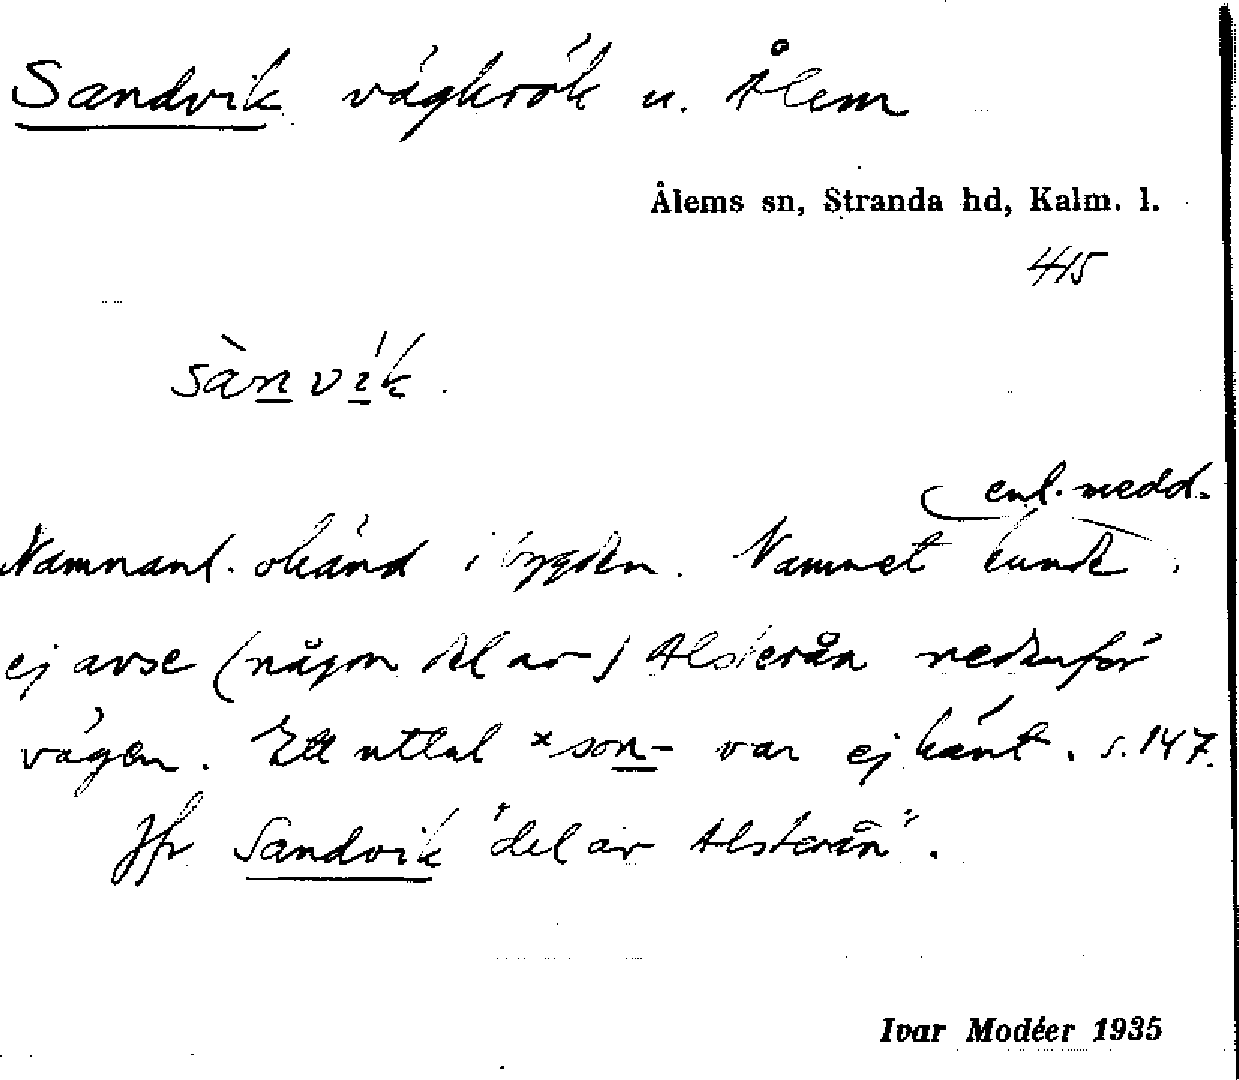 Sandvik vägkrök u. Ålem
Ålems sn, Stranda hd, Kalm. l.
415
sànvík.
enl. medd.
Namnanl. okänd i bygden. Namnet kunde
ej avse (någon del av) Alsterån nedanför
vägen. Ett uttal *son- var ej känt. s. 147.
Jfr Sandvik "del av Alsterån".
Ivar Modéer 1935